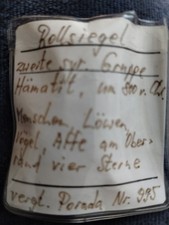 Rollsiegel
zweite syr. Gruppe
Hämatit, um 800 v. Chr.
Menschen, Löwen,
Vögel, Affe am Ober-
rand vier Sterne
vergl. Porada Nr. 995